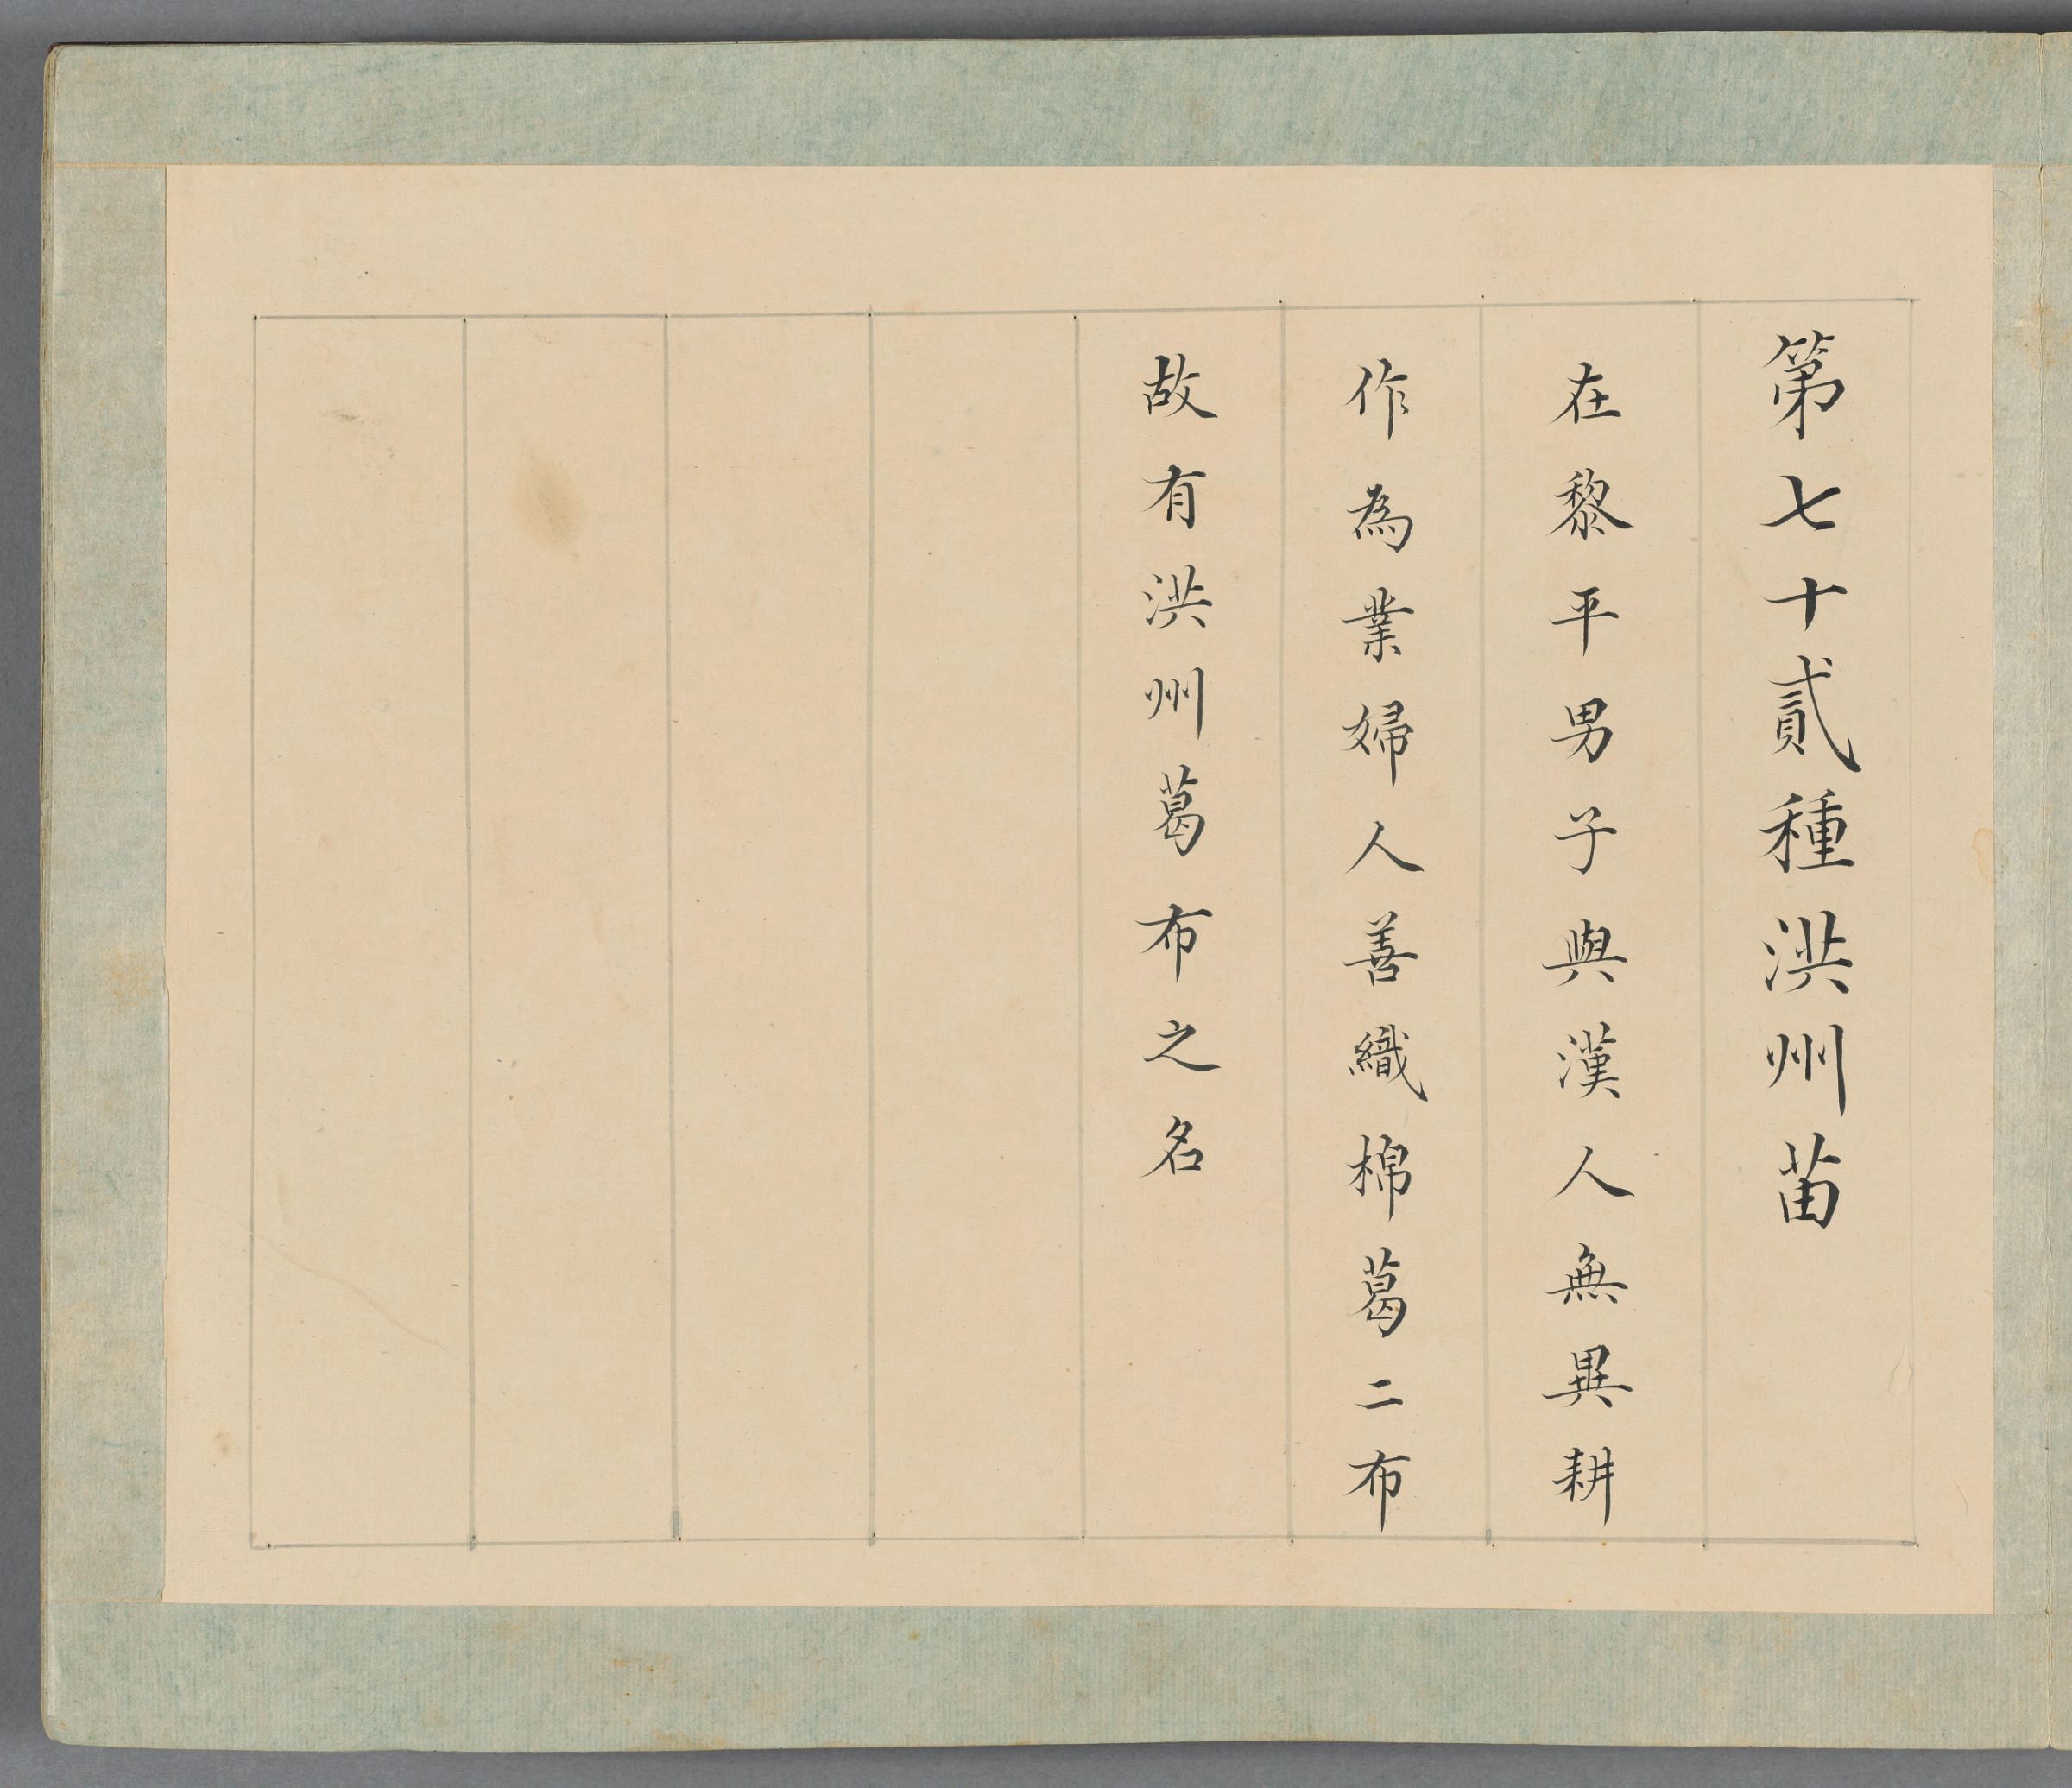 第七十貳種洪州苗
在黎平男子與漢人無異耕
作為業婦人善織棉葛二布
故有洪州葛布之名